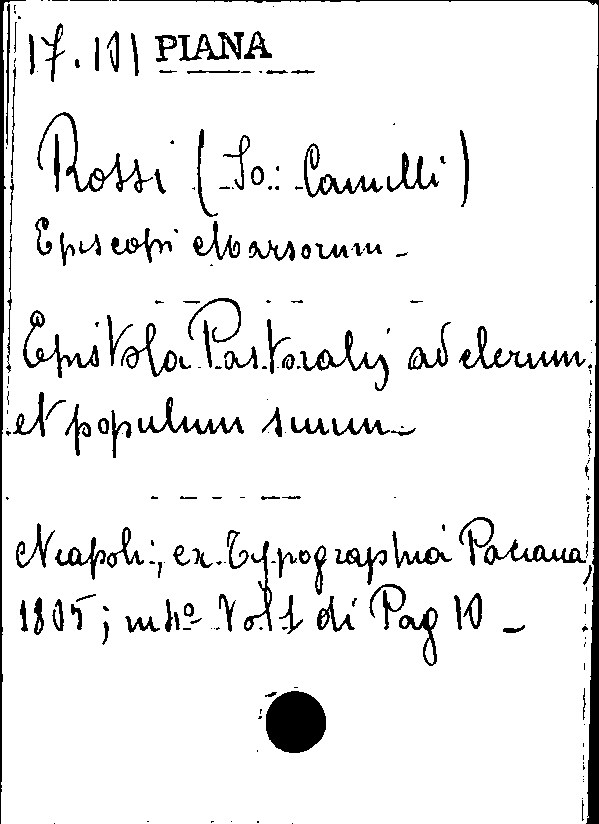 17.101 PIANA
Rossi (Io: Camilli)
Episcopi Marsorum -
Epistola Pastoralis ad clerum
et populum suum -
Neapoli, ex Typographia Paciana,
1805; in 4º Vol 1 di Pag 10 -